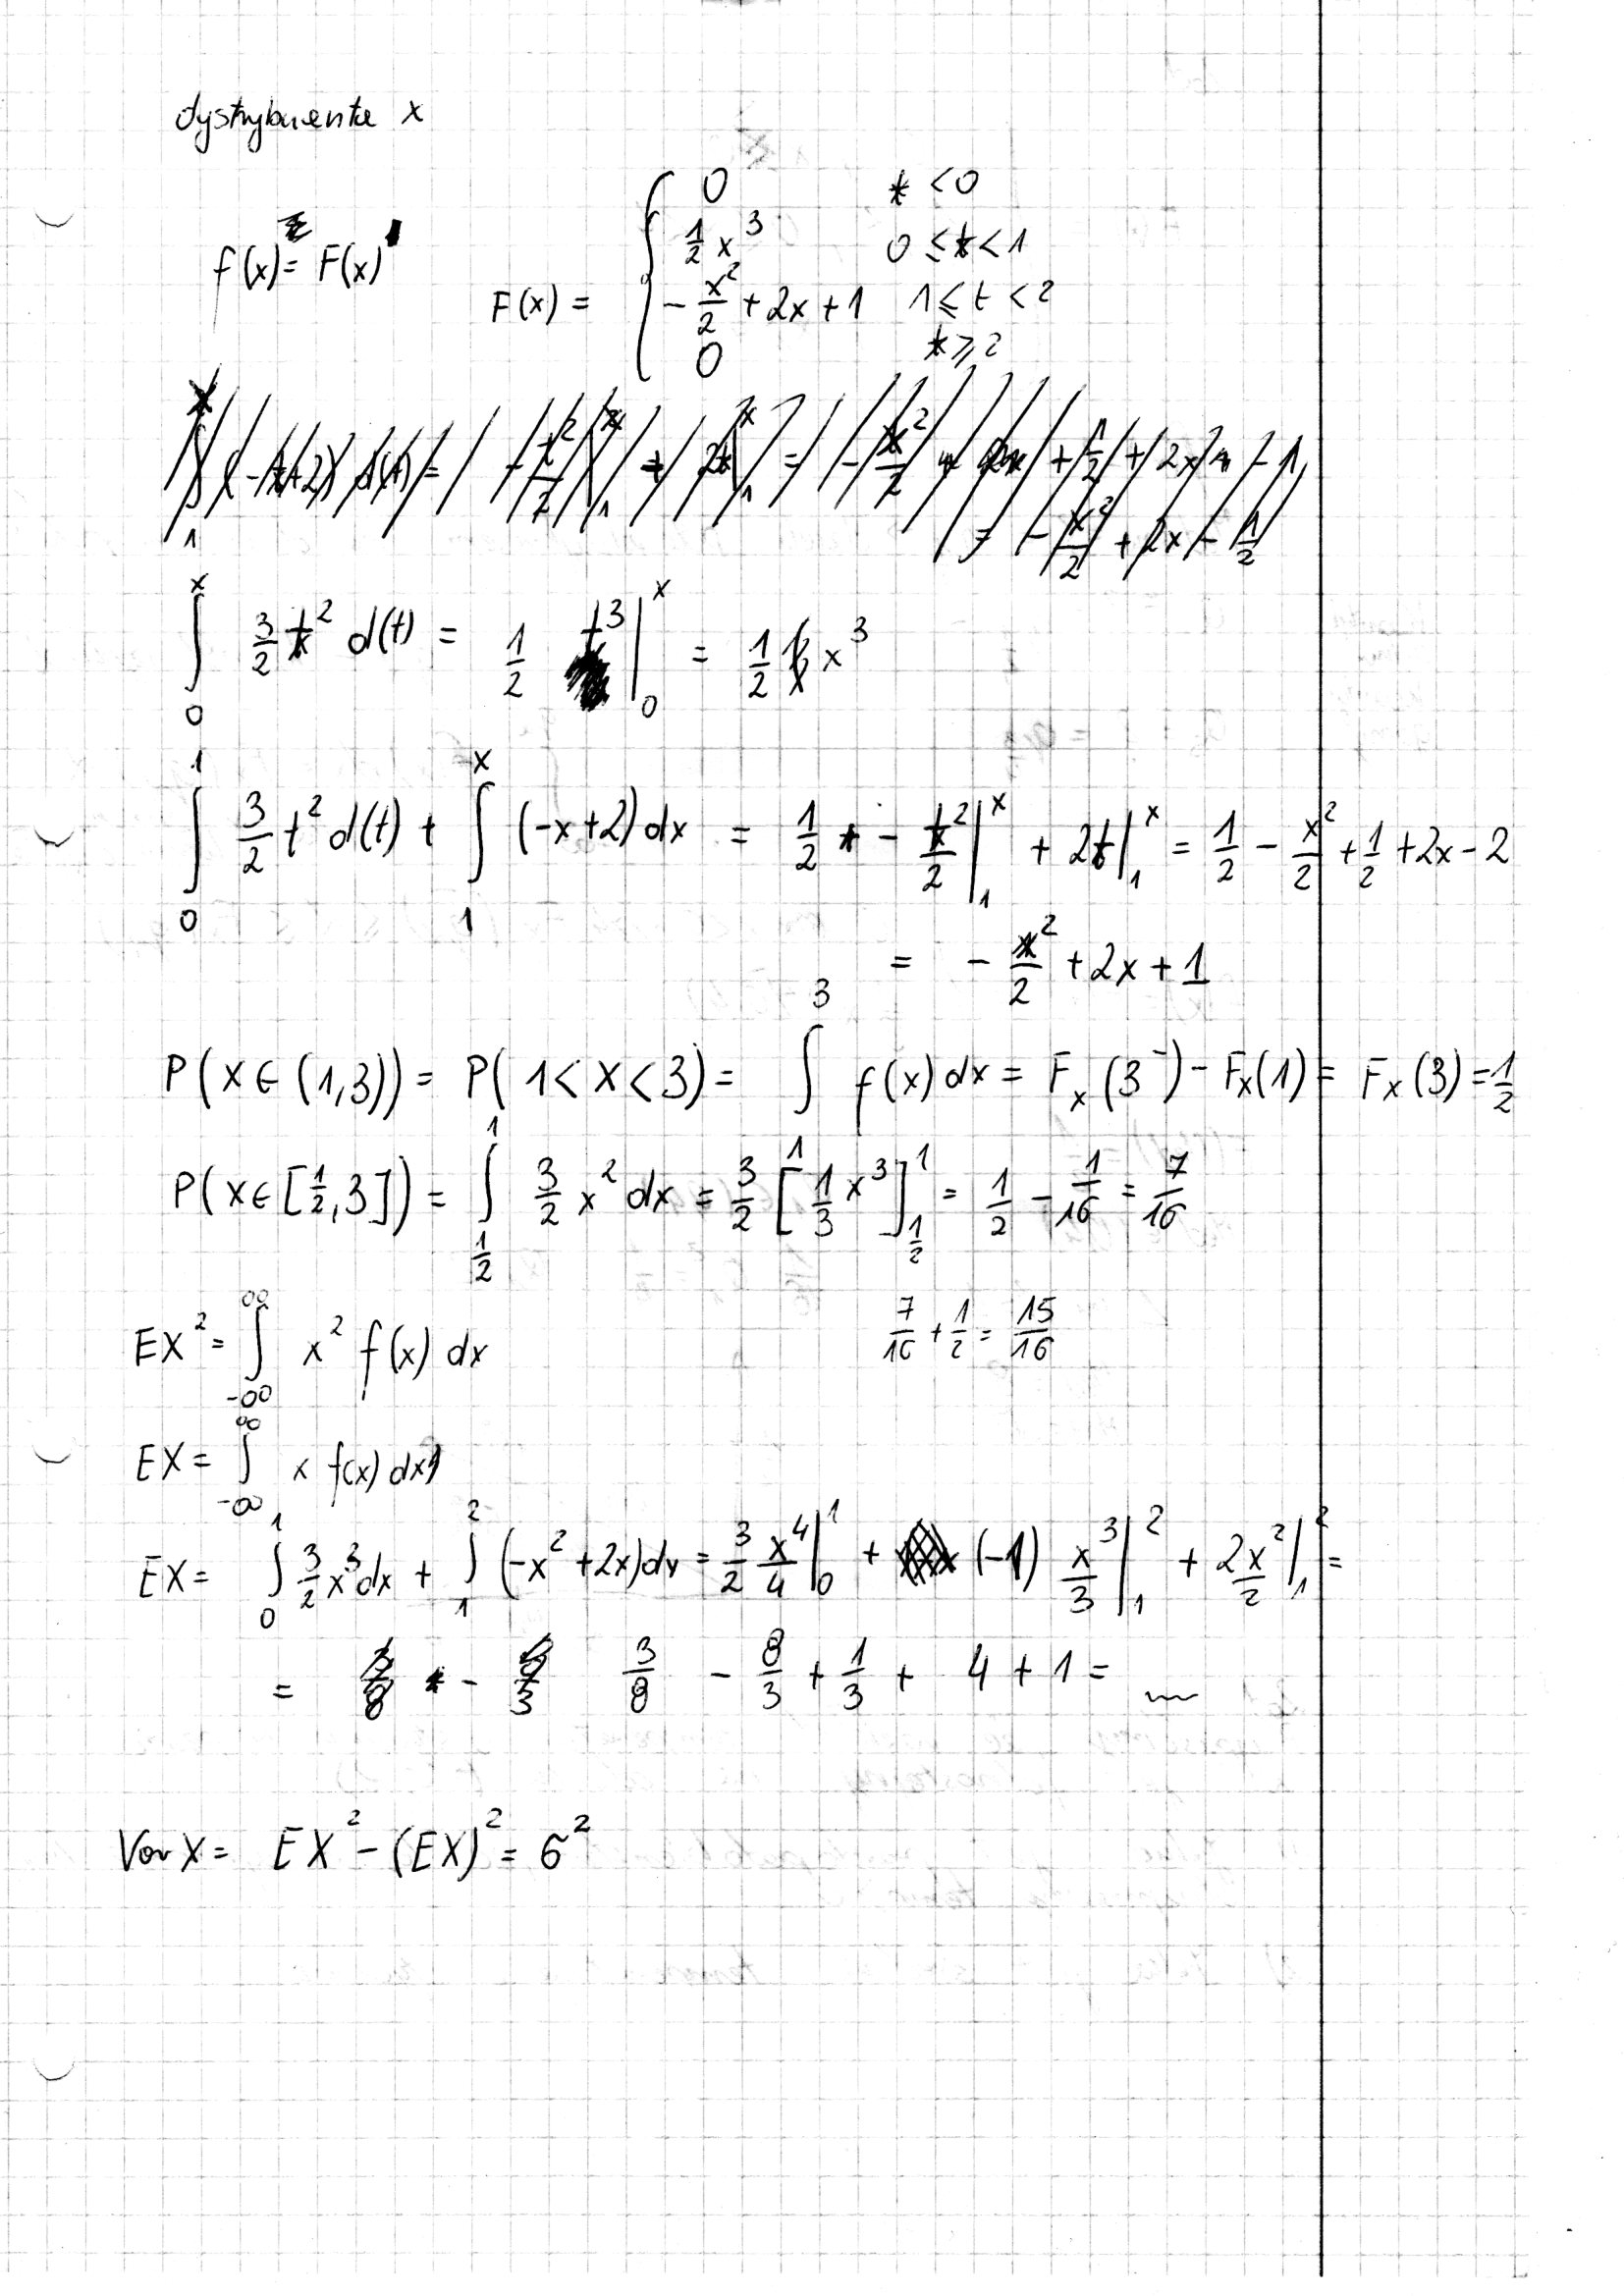 dystrybuenta x
f(x) = F(x)'
F(x) = { 0 x < 0
1/2 x³ 0 ≤ x < 1
- x²/2 + 2x + 1 1 ≤ t < 2
0 x ≥ 2
∫₀ˣ 3/2 t² d(t) = 1/2 t³ |₀ˣ = 1/2 x³
∫₀¹ 3/2 t² d(t) + ∫₁ˣ (-x+2) dx = 1/2 - t²/2 |₁ˣ + 2t |₁ˣ = 1/2 - x²/2 + 1/2 + 2x - 2
= - x²/2 + 2x + 1
P(X ∈ (1,3)) = P(1 < X < 3) = ∫₁³ f(x) dx = F_X(3⁻) - F_X(1) = F_X(3) = 1/2
P(X ∈ [1/2, 3]) = ∫_{1/2}^1 3/2 x² dx = 3/2 [1/3 x³]_{1/2}^1 = 1/2 - 1/16 = 7/16
7/16 + 1/2 = 15/16
EX² = ∫_{-∞}^{∞} x² f(x) dx
EX = ∫_{-∞}^{∞} x f(x) dx
EX = ∫₀¹ 3/2 x³ dx + ∫₁² (-x² + 2x) dx = 3/2 x⁴/4 |₀¹ + (-1) x³/3 |₁² + 2x²/2 |₁² =
= 3/8 - 8/3 + 1/3 + 4 + 1 =
Var X = EX² - (EX)² = 6²